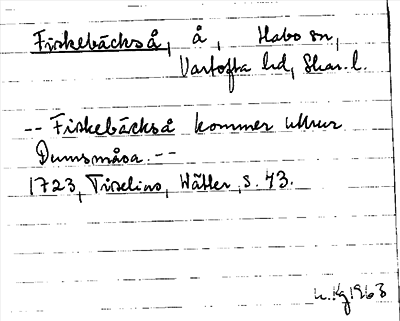 Fiskebäckså, å, Habo sn,
Vartofta hd, Skar. l.
-- Fiskebäckså kommer uthur
Dumsmåsa. --
1723, Tiselius, Wätter, s. 43.
1963